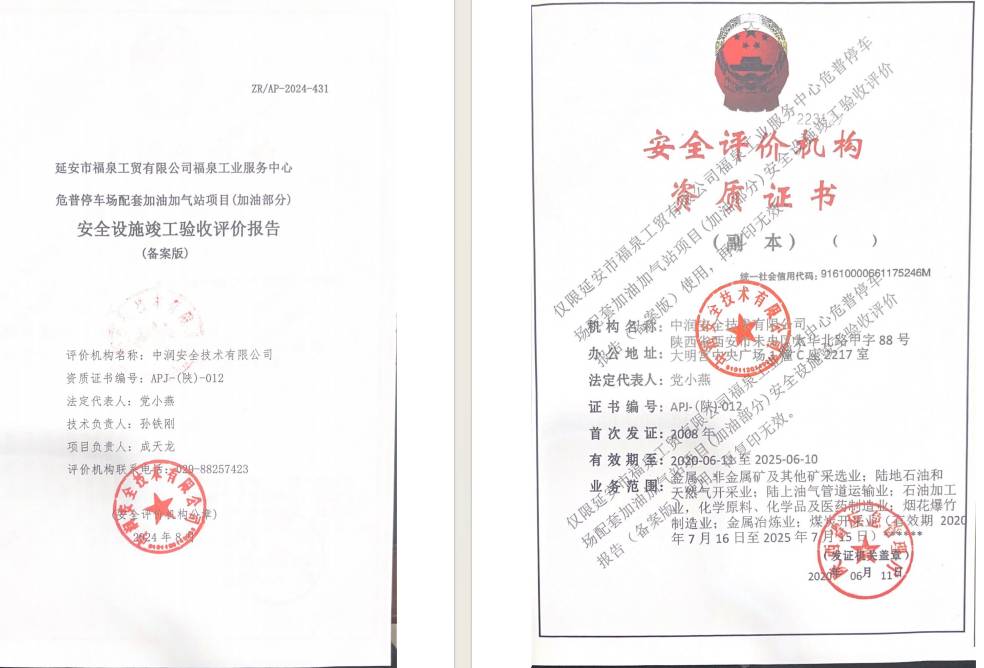 ZR/AP-2024-431
延安市福泉工贸有限公司福泉工业服务中心
危普停车场配套加油加气站项目(加油部分)
安全设施竣工验收评价报告
(备案版)
评价机构名称：中润安全技术有限公司
资质证书编号：APJ-(陕)-012
法定代表人：党小燕
技术负责人：孙铁刚
项目负责人：成天龙
评价机构联系电话：029-88257423
(安全评价机构公章)
2024年8
安全评价机构
资质证书
(副 本) ( )
统一社会信用代码：91610000661175246M
机构名称：中润安全技术有限公司
办公地址：陕西省西安市未央区太华北路甲字88号
大明宫中央广场3幢C座2217室
法定代表人：党小燕
证书编号：APJ-(陕)-012
首次发证：2008年
有效期至：2020-06-11至2025-06-10
业务范围：金属、非金属矿及其他矿采选业；陆地石油和
天然气开采业；陆上油气管道运输业；石油加工
业，化学原料、化学品及医药制造业；烟花爆竹
制造业；金属冶炼业；煤炭开采业（有效期 2020
年7月16日至2025年7月15日）******
(发证机关盖章)
2020年 06月 11日
仅限延安市福泉工贸有限公司福泉工业服务中心危普停车
场配套加油加气站项目(加油部分)安全设施竣工验收评价
报告（备案版）使用，再复印无效。
仅限延安市福泉工贸有限公司福泉工业服务中心危普停车
场配套加油加气站项目(加油部分)安全设施竣工验收评价
报告（备案版）使用，再复印无效。